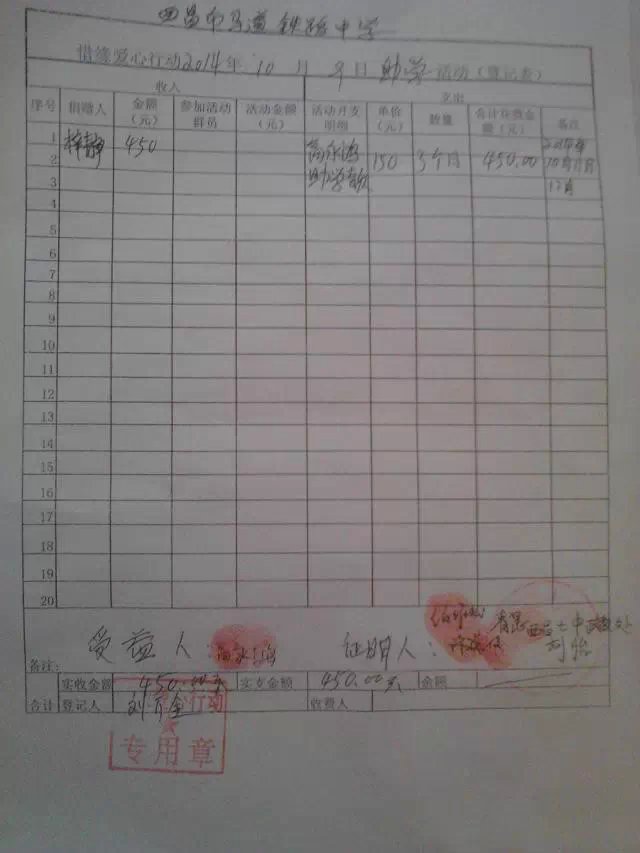 西昌市马道铁路中学
惜缘爱心行动2014年10月9日助学活动（登记表）
收入 支出
序号 捐赠人 金额（元） 参加活动群员 活动金额（元） 活动开支明细 单价（元） 数量 合计花费金额（元） 备注
1 梓静 450 2014年
2 150 3个月 450.00 10月11月
3 助学 12月
4
5
6
7
8
9
10
11
12
13
14
15
16
17
18
19
20
受益人： 证明人：
备注：
实收金额 450.00元 实支金额 450.00元 余额
合计 登记人 收费人
行动
专用章